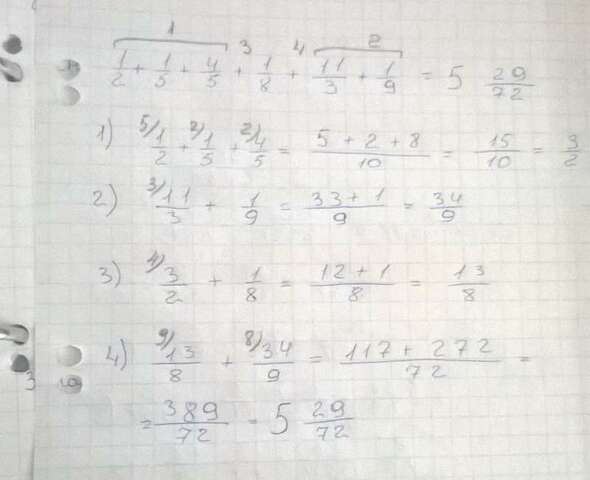 1 3 4 2
1/2 + 1/5 + 4/5 + 1/8 + 11/3 + 1/9 = 5 29/72
1) 5/ 1/2 + 2/ 1/5 + 2/ 4/5 = 5 + 2 + 8/10 = 15/10 = 3/2
2) 3/ 11/3 + 1/9 = 33 + 1/9 = 34/9
3) 4/ 3/2 + 1/8 = 12 + 1/8 = 13/8
4) 9/ 13/8 + 8/ 34/9 = 117 + 272/72 =
= 389/72 = 5 29/72